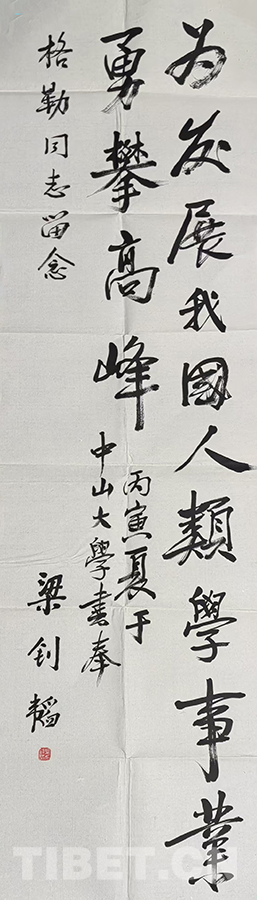 为发展我國人類學事業
勇攀高峰
丙寅夏于
中山大學書奉
格勒同志留念
梁釗韜
TIBET.CN